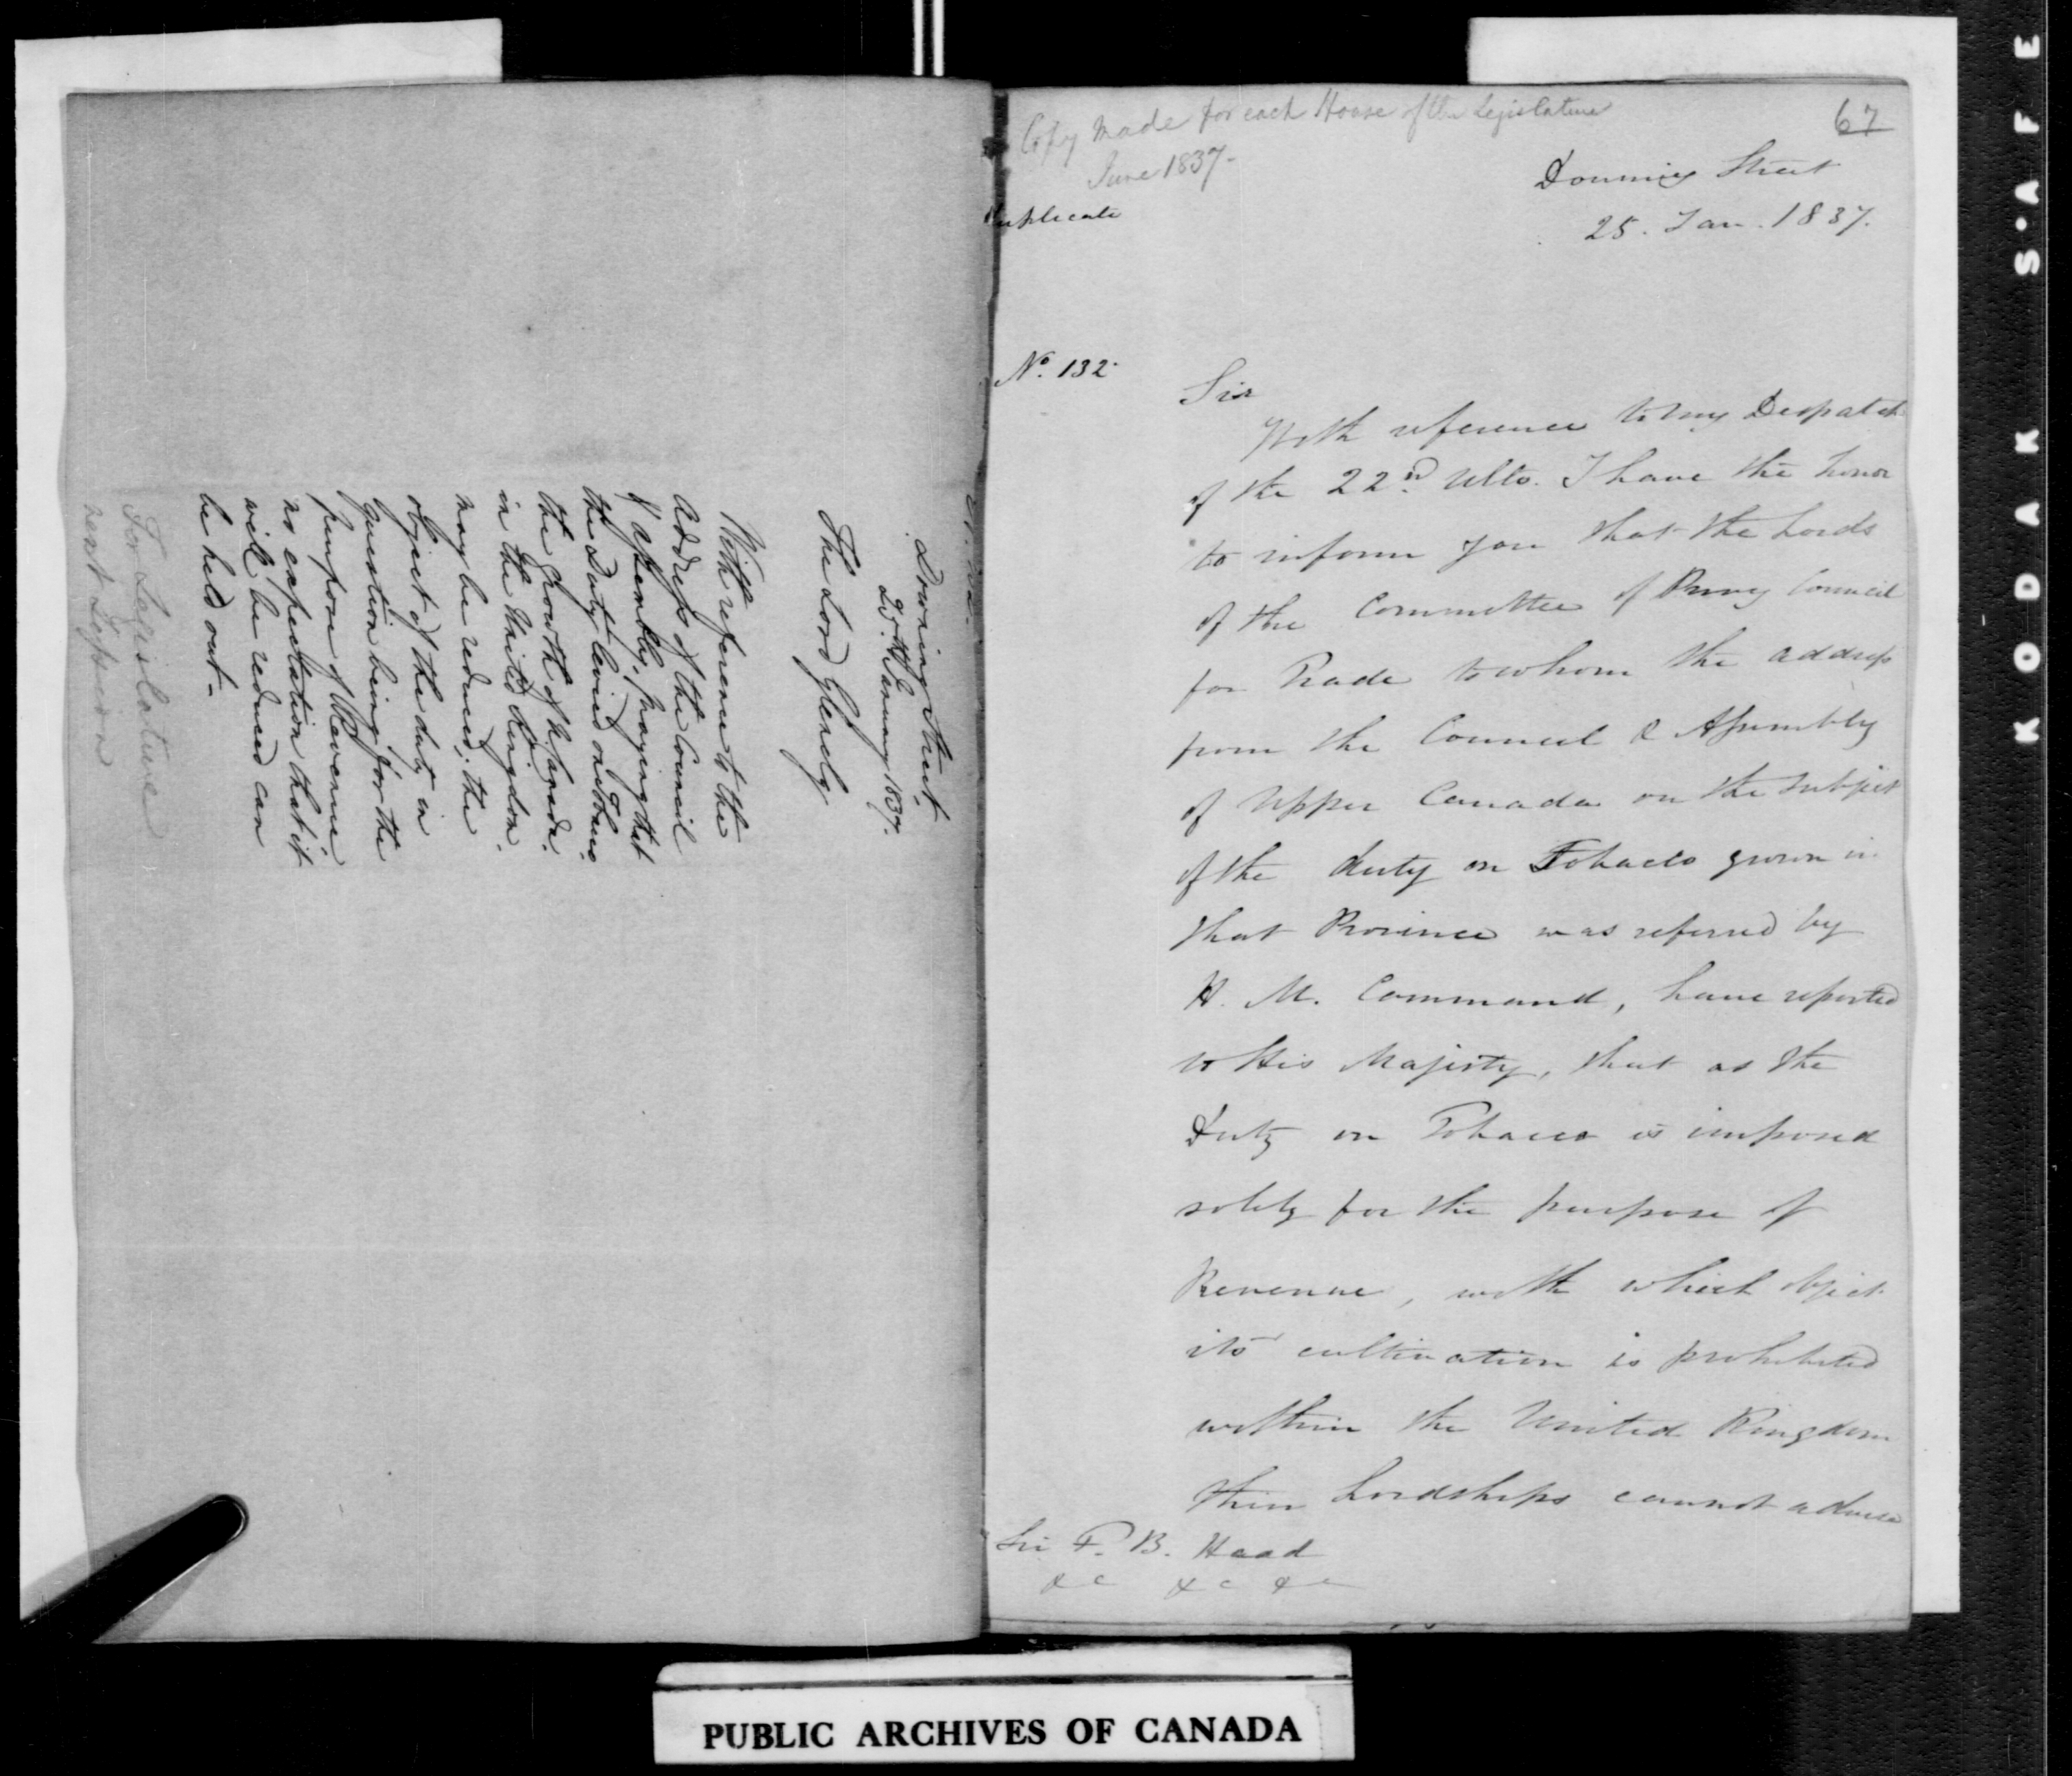 Downing Street,
25th January 1837.
The Lord Glenelg
With reference to the
Address of the Council
& Assembly, praying that
the Duty levied on Tobacco
the growth of U. Canada
in the United Kingdom
may be reduced; the
object of the duty in
question being for the
purpose of Revenue
no expectation that it
will be reduced can
be held out.
For Legislature
next Session
Copy made for each House of the Legislature
June 1837-
67
Duplicate
Downing Street
25. Jan. 1837.
No. 132.
Sir
With reference to my Despatch
of the 22nd Ulto. I have the honor
to inform you that the Lords
of the Committee of Privy Council
for Trade to whom the address
from the Council & Assembly
of Upper Canada on the subject
of the duty on Tobacco grown in
that Province was referred by
H. M. Command, have reported
to His Majesty, that as the
Duty on Tobacco is imposed
solely for the purpose of
Revenue, with which object
its cultivation is prohibited
within the United Kingdom
their Lordships cannot advise
Sir F. B. Head
&c &c &c
PUBLIC ARCHIVES OF CANADA
KODAK S'AFE